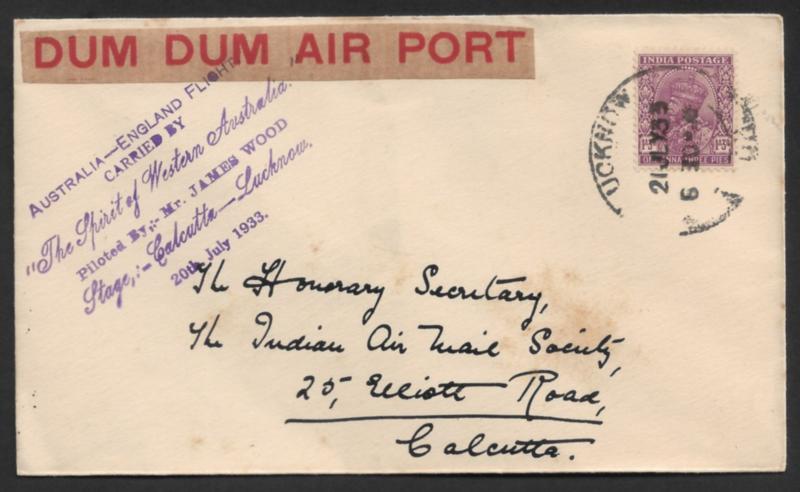 DUM DUM AIR PORT
AUSTRALIA—ENGLAND FLIGHT
CARRIED BY
"The Spirit of Western Australia."
Piloted By,:- Mr. JAMES WOOD
Stage,:- Calcutta—Lucknow.
20th July 1933.
INDIA POSTAGE
ONE ANNA THREE PIES
LUCKNOW
21 JLY 33
The Honorary Secretary,
The Indian Air Mail Society,
25, Elliott Road,
Calcutta.